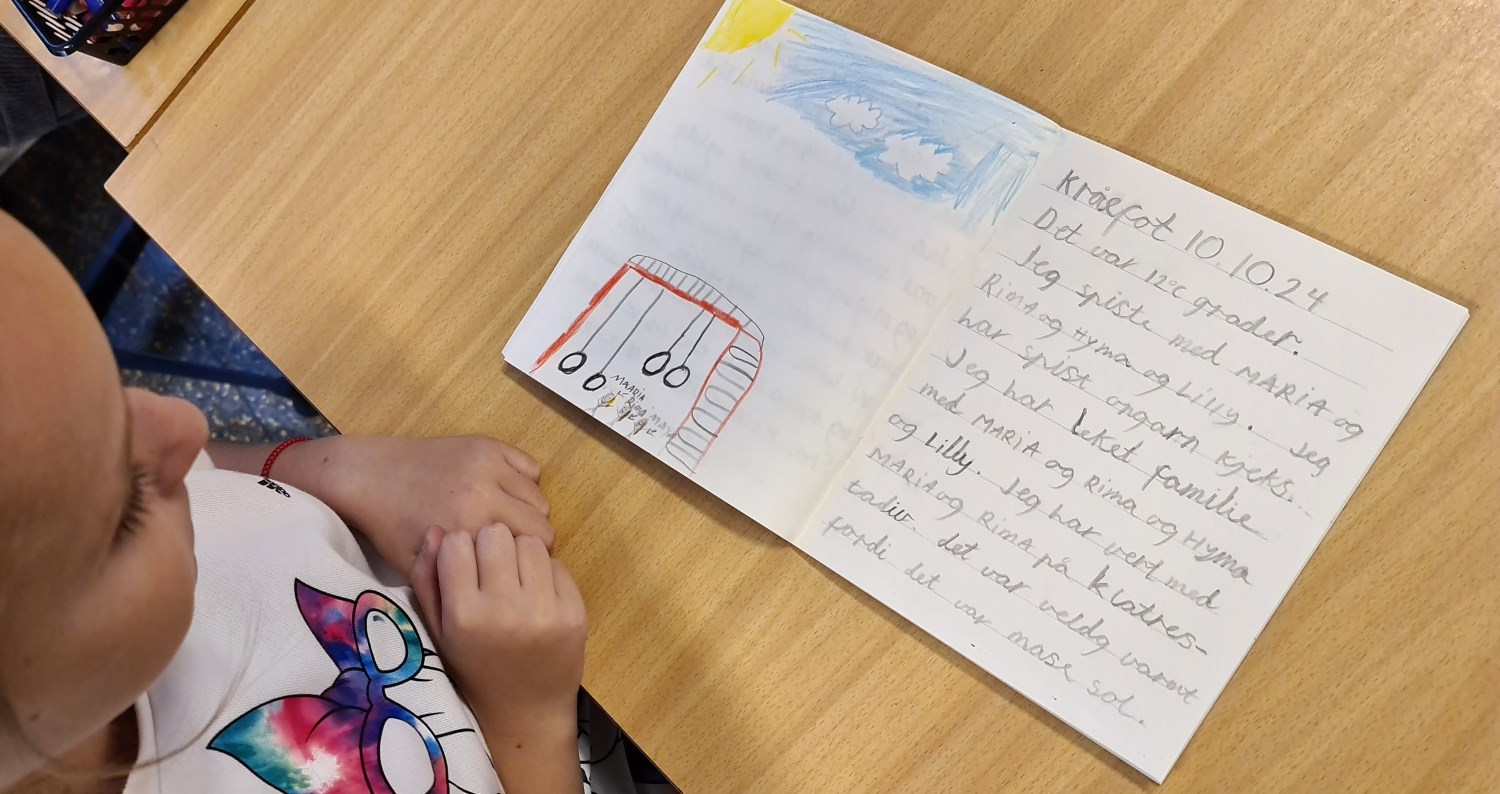 MAARIA
RIMA MAYA
Kråkfot 10.10.24
Det var 12°C grader.
Jeg spiste med MARIA og
RiMA og Hyma og Lilly. Jeg
har spist ongarn kjeks.
Jeg har leket familie
med MARiA og Rima og Hyma
og Lilly. Jeg har vert med
MARiA og RiMA på klatres-
tativ. det var veldg varmt
fordi det var mase sol.